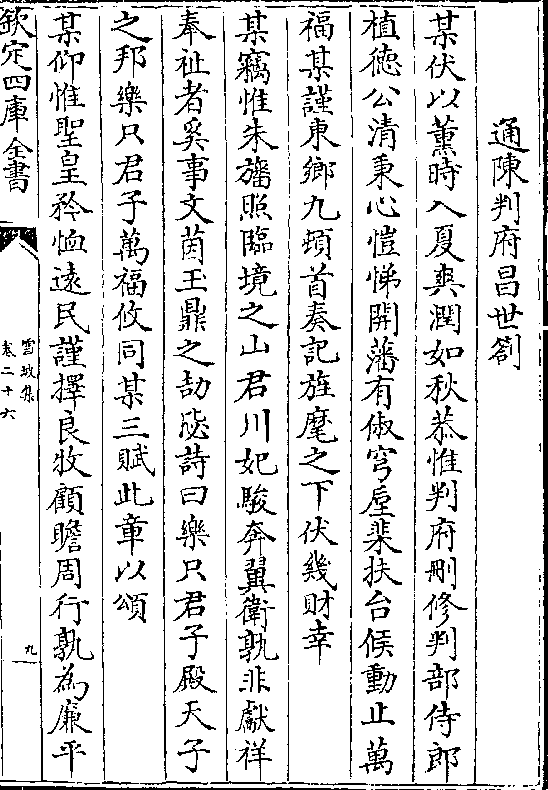 通陳判府昌世劄
某伏以薰時入夏爽潤如秋恭惟判府刪修判部侍郎
植徳公清秉心愷悌開藩有俶穹垕棐扶台候動止萬
福某謹東鄉九頓首奏記旌麾之下伏幾財幸
某竊惟朱旛照臨境之山君川妃駿奔翼衛孰非獻祥
奉祉者奚事文茵玉鼎之劼毖詩曰樂只君子殿天子
之邦樂只君子萬福攸同某三賦此章以頌
某仰惟聖皇矜恤逺民謹擇良牧顧瞻周行孰為廉平
欽定四庫全書
雪坡集
卷二十六
九